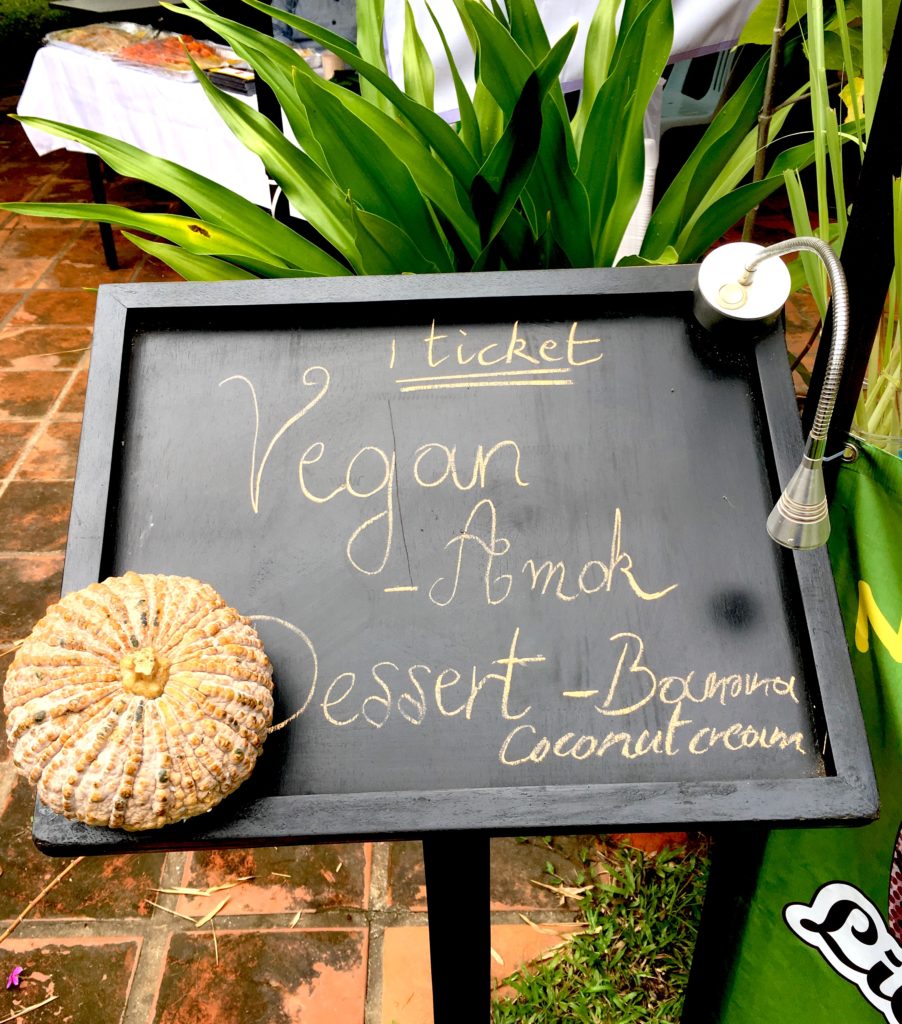 1 ticket
Vegan
- Amok
Dessert - Banana
Coconut cream